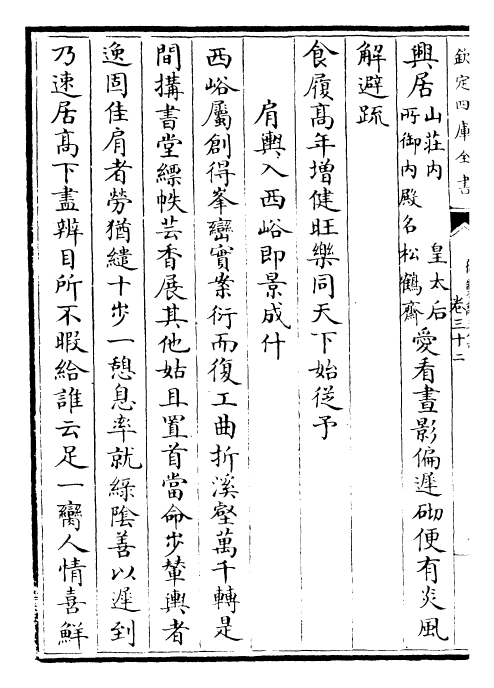 欽定四庫全書
卷三十二
興居山莊内　皇太后所御内殿名松鶴齋愛看晝影偏遲砌便有炎風
解避疏
食履髙年增健旺樂同天下始從予
肩輿入西峪即景成什
西峪屬創得峯巒實案衍而復工曲折溪壑萬千轉是
間搆書堂縹帙芸香展其他姑且置首當命步輦輿者
逸固佳肩者勞猶繾十步一憩息率就緑陰善以遲到
乃速居髙下盡辨目所不暇給誰云足一臠人情喜鮮